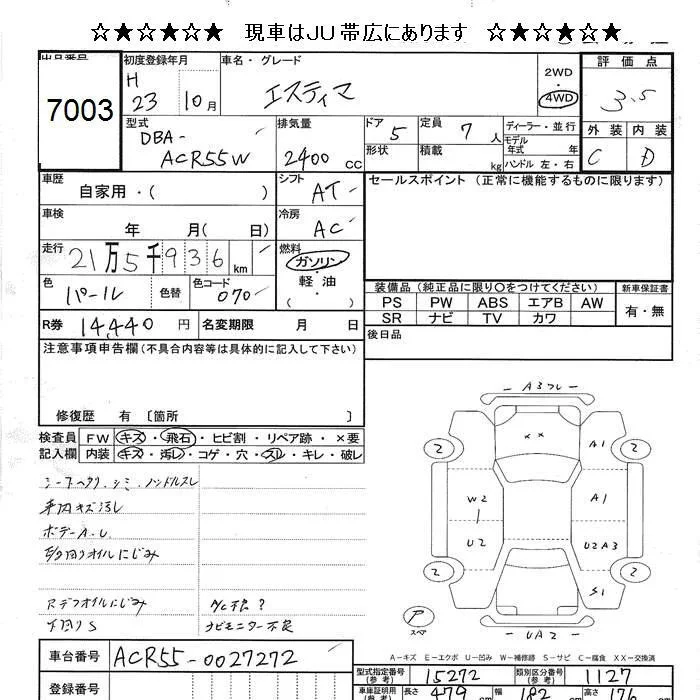 ☆★☆★☆★ 現車はJU帯広にあります ☆★☆★☆★
出品番号
7003
初度登録年月
H
23 10月
車名・グレード
エスティマ
2WD
・
4WD
評価点
3.5
外装 内装
C D
型式
DBA-
ACR55W
排気量
2400 CC
ドア 5
形状
定員 7 人
積載 kg
ディーラー・並行
モデル
年式 年
ハンドル 左・右
車歴
自家用・( )
シフト AT
セールスポイント (正常に機能するものに限ります)
車検
年 月( 日)
冷房 AC
走行
21万5千936 km
燃料
ガソリン
・
軽油
( )
色
パール
色替
色コード
070
装備品(純正品に限り〇をつけてください)
新車保証書
PS PW ABS エアB AW
SR ナビ TV カワ
有・無
R券 14,440 円
名変期限 月 日
後日品
注意事項申告欄(不具合内容等は具体的に記入して下さい)
修復歴 有 〔箇所 〕
検査員
記入欄
FW キズ・飛石・ヒビ割・リペア跡・×要
内装 キズ・汚レ・コゲ・穴・スレ・キレ・破レ
シートヘタリ、シミ、ハンドルスレ
車内キズ汚レ
ボデーA.U
Rデフオイルにじみ
下回りS
A/C不良?
ナビモニター不良
A3フレ
××
A1
2
2
W2
A1
U2
U2A3
2
2
S1
P
スペア
UA2
A-キズ E-エクボ U-凹み W-補修跡 S-サビ C-腐食 XX-交換済
車台番号
ACR55-0027272
登録番号
型式指定番号
(参考)
15272
類別区分番号
(参考)
1127
車庫証明用
(参考)
長さ 479 cm 幅 182 cm 高さ 176